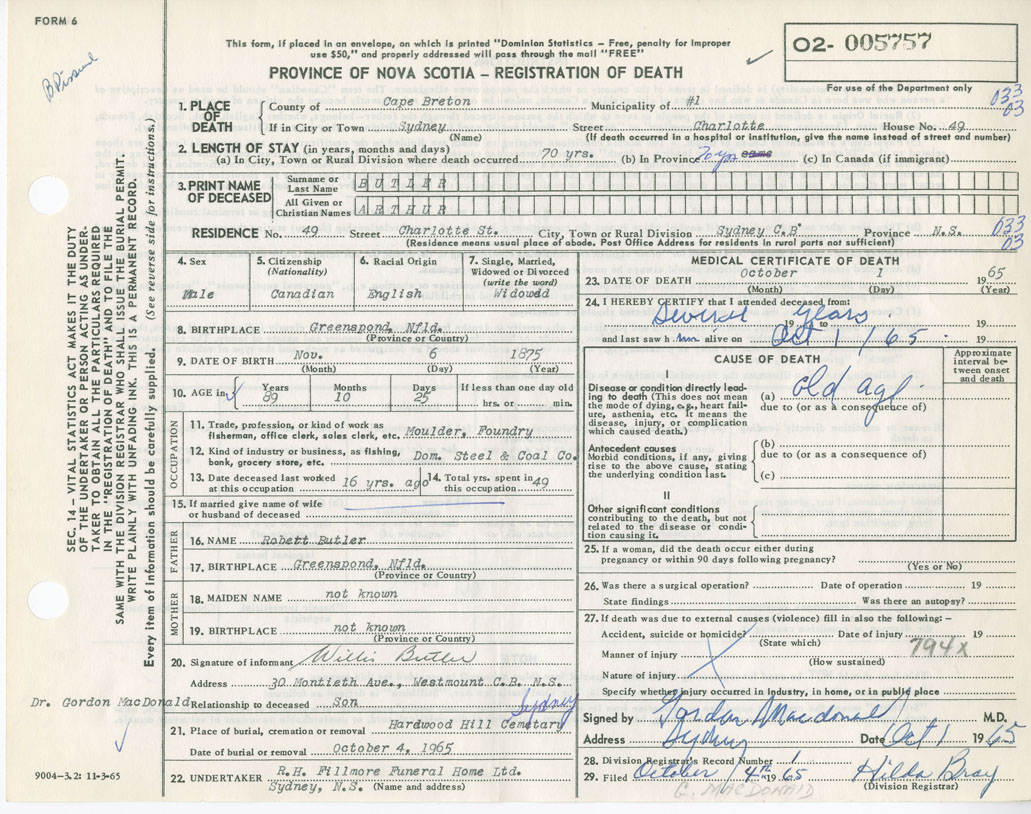 FORM 6
B Pissuel
This form, if placed in an envelope, on which is printed "Dominion Statistics – Free, penalty for improper
use $50," and properly addressed will pass through the mail "FREE"
PROVINCE OF NOVA SCOTIA – REGISTRATION OF DEATH
02- 005757
For use of the Department only
033
03
1. PLACE OF DEATH
County of Cape Breton Municipality of #1
If in City or Town Sydney Street Charlotte House No. 49
(Name) (If death occurred in a hospital or institution, give the name instead of street and number)
2. LENGTH OF STAY (in years, months and days)
(a) In City, Town or Rural Division where death occurred 70 yrs. (b) In Province 70 yrs same (c) In Canada (if immigrant)
3. PRINT NAME OF DECEASED
Surname or Last Name BUTLER
All Given or Christian Names ARTHUR
RESIDENCE No. 49 Street Charlotte St. City, Town or Rural Division Sydney C.B. Province N.S.
(Residence means usual place of abode. Post Office Address for residents in rural parts not sufficient)
033
03
4. Sex
Male
5. Citizenship
(Nationality)
Canadian
6. Racial Origin
English
7. Single, Married,
Widowed or Divorced
(write the word)
Widowed
8. BIRTHPLACE Greenspond, Nfld.
(Province or Country)
9. DATE OF BIRTH Nov. 6 1875
(Month) (Day) (Year)
10. AGE in Years Months Days If less than one day old
89 10 25 hrs. or min.
OCCUPATION
11. Trade, profession, or kind of work as
fisherman, office clerk, sales clerk, etc. Moulder, Foundry
12. Kind of industry or business, as fishing,
bank, grocery store, etc. Dom. Steel & Coal Co.
13. Date deceased last worked
at this occupation 16 yrs. ago
14. Total yrs. spent in
this occupation 49
15. If married give name of wife
or husband of deceased
FATHER
16. NAME Robett Butler
17. BIRTHPLACE Greenspond, Nfld.
(Province or Country)
MOTHER
18. MAIDEN NAME not known
19. BIRTHPLACE not known
(Province or Country)
20. Signature of informant Willis Butler
Address 30 Montieth Ave., Westmount C.B. N.S.
Dr. Gordon MacDonald
Relationship to deceased Son
21. Place of burial, cremation or removal Hardwood Hill Cemetary Sydney
Date of burial or removal October 4, 1965
22. UNDERTAKER R.H. Fillmore Funeral Home Ltd.
Sydney, N.S. (Name and address)
9004-3.2: 11-3-65
SEC. 14 – VITAL STATISTICS ACT MAKES IT THE DUTY
OF THE UNDERTAKER OR PERSON ACTING AS UNDER-
TAKER TO OBTAIN ALL THE PARTICULARS REQUIRED
IN THE "REGISTRATION OF DEATH" AND TO FILE THE
SAME WITH THE DIVISION REGISTRAR WHO SHALL ISSUE THE BURIAL PERMIT.
WRITE PLAINLY WITH UNFADING INK. THIS IS A PERMANENT RECORD.
Every item of information should be carefully supplied. (See reverse side for instructions.)
MEDICAL CERTIFICATE OF DEATH
23. DATE OF DEATH October 1 1965
(Month) (Day) (Year)
24. I HEREBY CERTIFY that I attended deceased from:
Several years 19 to 19
and last saw him alive on Oct 1 / 65 19
CAUSE OF DEATH
Approximate
interval be-
tween onset
and death
I
Disease or condition directly lead-
ing to death (This does not mean
the mode of dying, e.g., heart fail-
ure, asthenia, etc. It means the
disease, injury, or complication
which caused death.)
(a) old age
due to (or as a consequence of)
Antecedent causes
Morbid conditions, if any, giving
rise to the above cause, stating
the underlying condition last.
(b)
due to (or as a consequence of)
(c)
II
Other significant conditions
contributing to the death, but not
related to the disease or condi-
tion causing it.
25. If a woman, did the death occur either during
pregnancy or within 90 days following pregnancy?
(Yes or No)
26. Was there a surgical operation? Date of operation 19
State findings Was there an autopsy?
27. If death was due to external causes (violence) fill in also the following: –
Accident, suicide or homicide? Date of injury 19
(State which)
794x
Manner of injury
(How sustained)
Nature of injury
Specify whether injury occurred in industry, in home, or in public place
Signed by Gordon Macdonald M.D.
Address Sydney Date Oct 1 1965
28. Division Registrar's Record Number
29. Filed October 4th 1965 Hilda Bray
(Division Registrar)
G. MACDONALD